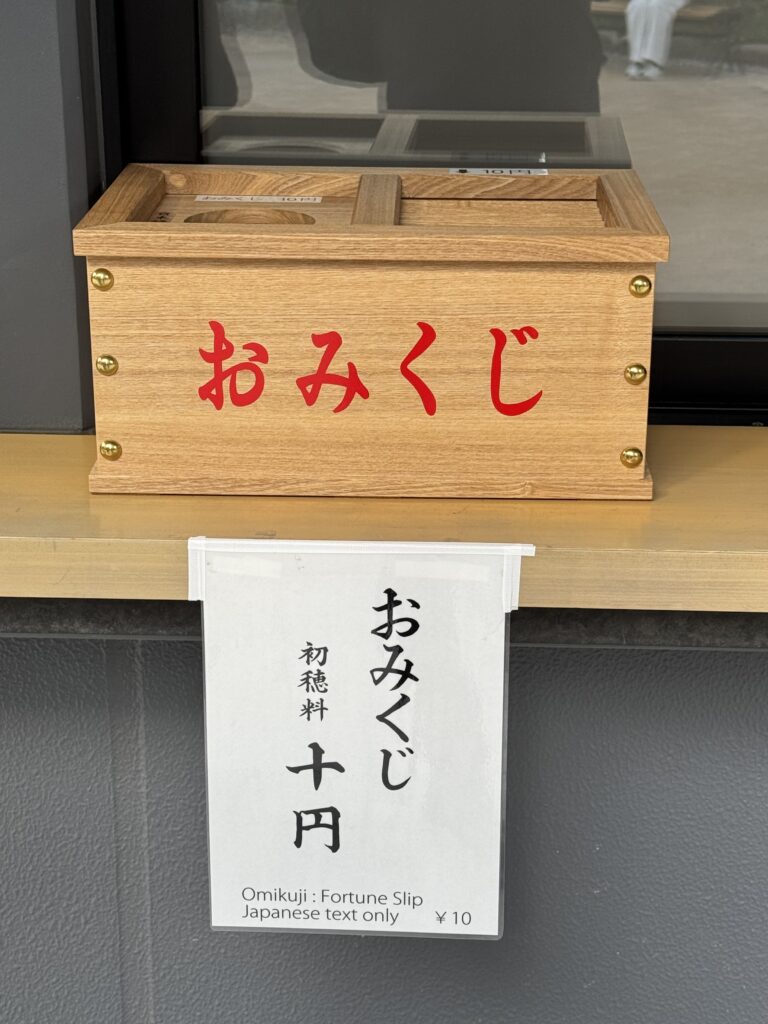 おみくじ 10円
10円
おみくじ
おみくじ
初穂料 十円
Omikuji : Fortune Slip
Japanese text only ￥10